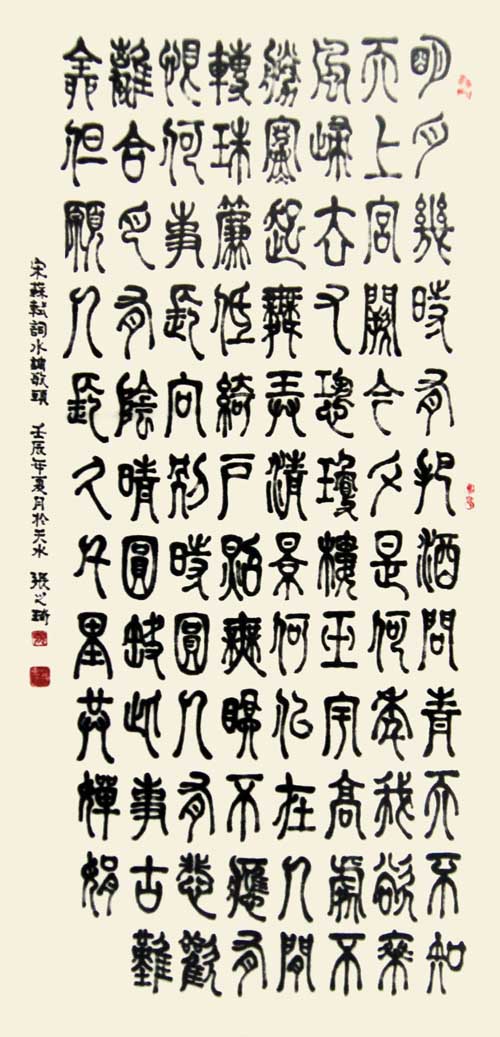 明月幾時有把酒問青天不知
天上宮闕今夕是何年我欲乘
風歸去又恐瓊樓玉宇高處不
勝寒起舞弄清景何似在人間
轉珠簾低綺戶照無眠不應有
恨何事長向別時圓人有悲歡
離合月有陰晴圓缺此事古難
全但願人長久千里共嬋娟
宋蘇軾詞水調歌頭 壬辰年夏月於天水 張之琦